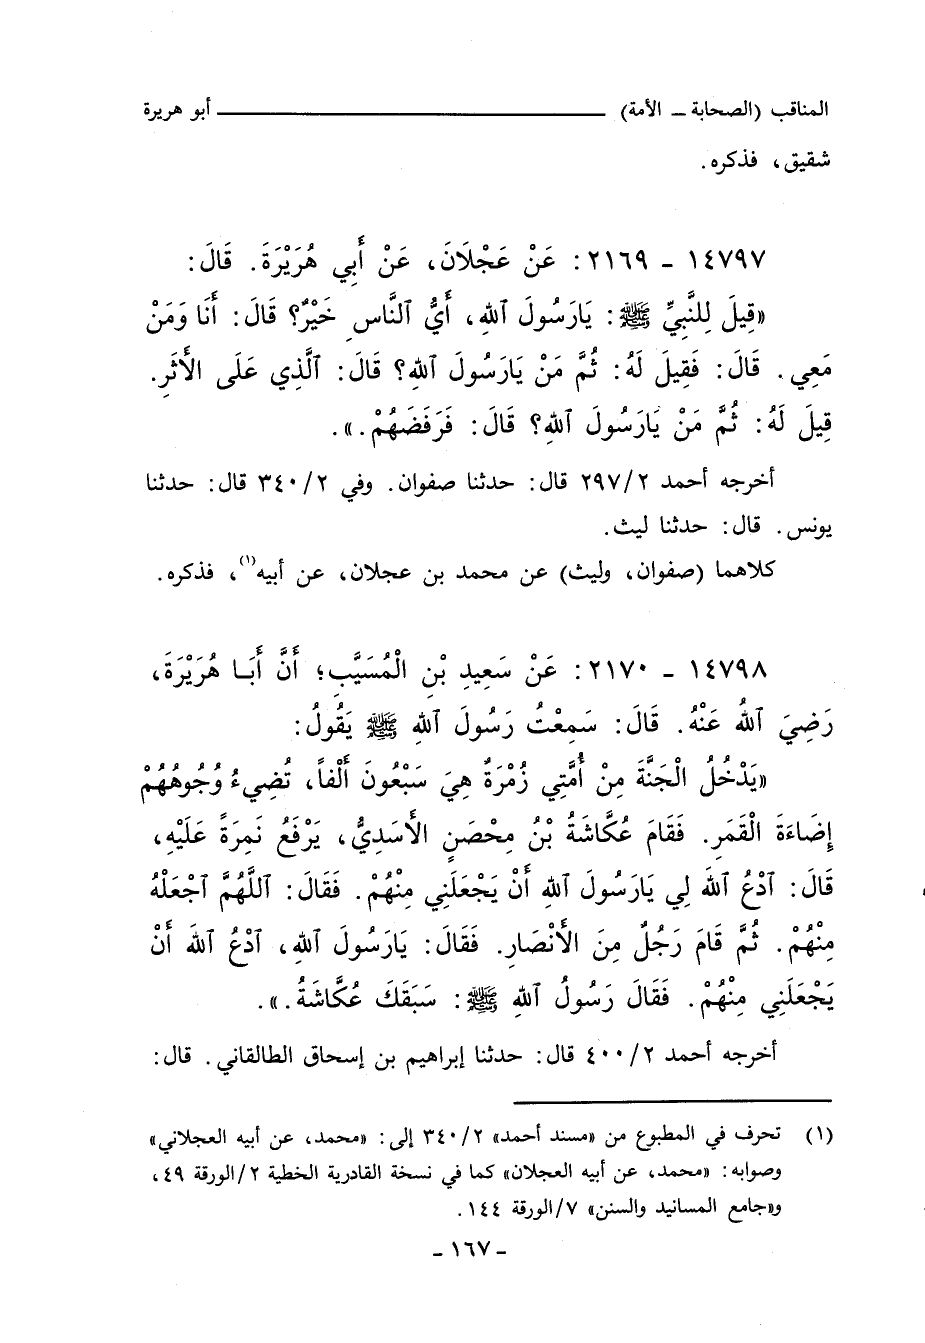 المناقب (الصحابة ــ الأمة) ــــــــــــــــــــ أبو هريرة
شقيق، فذكره.
١٤٧٩٧ - ٢١٦٩: عَنْ عَجْلَانَ، عَنْ أَبِي هُرَيْرَةَ. قَالَ:
«قِيلَ لِلنَّبِيِّ ﷺ: يَارَسُولَ ٱللهِ، أَيُّ ٱلنَّاسِ خَيْرٌ؟ قَالَ: أَنَا وَمَنْ
مَعِي. قَالَ: فَقِيلَ لَهُ: ثُمَّ مَنْ يَارَسُولَ ٱللهِ؟ قَالَ: ٱلَّذِي عَلَى الأَثَرِ.
قِيلَ لَهُ: ثُمَّ مَنْ يَارَسُولَ ٱللهِ؟ قَالَ: فَرَفَضَهُمْ.».
أخرجه أحمد ٢/ ٢٩٧ قال: حدثنا صفوان. وفي ٢/ ٣٤٠ قال: حدثنا
يونس. قال: حدثنا ليث.
كلاهما (صفوان، وليث) عن محمد بن عجلان، عن أبيه(١)، فذكره.
١٤٧٩٨ - ٢١٧٠: عَنْ سَعِيدِ بْنِ الْمُسَيَّبِ؛ أَنَّ أَبَا هُرَيْرَةَ،
رَضِيَ ٱللهُ عَنْهُ. قَالَ: سَمِعْتُ رَسُولَ ٱللهِ ﷺ يَقُولُ:
«يَدْخُلُ الْجَنَّةَ مِنْ أُمَّتِي زُمْرَةٌ هِيَ سَبْعُونَ أَلْفاً، تُضِيءُ وُجُوهُهُمْ
إِضَاءَةَ الْقَمَرِ. فَقَامَ عُكَّاشَةُ بْنُ مِحْصَنٍ الأَسَدِيُّ، يَرْفَعُ نَمِرَةً عَلَيْهِ،
قَالَ: ٱدْعُ ٱللهَ لِي يَارَسُولَ ٱللهِ أَنْ يَجْعَلَنِي مِنْهُمْ. فَقَالَ: اللَّهُمَّ ٱجْعَلْهُ
مِنْهُمْ. ثُمَّ قَامَ رَجُلٌ مِنَ الأَنْصَارِ. فَقَالَ: يَارَسُولَ ٱللهِ، ٱدْعُ ٱللهَ أَنْ
يَجْعَلَنِي مِنْهُمْ. فَقَالَ رَسُولُ ٱللهِ ﷺ: سَبَقَكَ عُكَّاشَةُ.».
أخرجه أحمد ٢/ ٤٠٠ قال: حدثنا إبراهيم بن إسحاق الطالقاني. قال:
(١) تحرف في المطبوع من «مسند أحمد» ٢/ ٣٤٠ إلى: «محمد، عن أبيه العجلاني»
وصوابه: «محمد، عن أبيه العجلان» كما في نسخة القادرية الخطية ٢/الورقة ٤٩،
و«جامع المسانيد والسنن» ٧/الورقة ١٤٤.
- ١٦٧ -